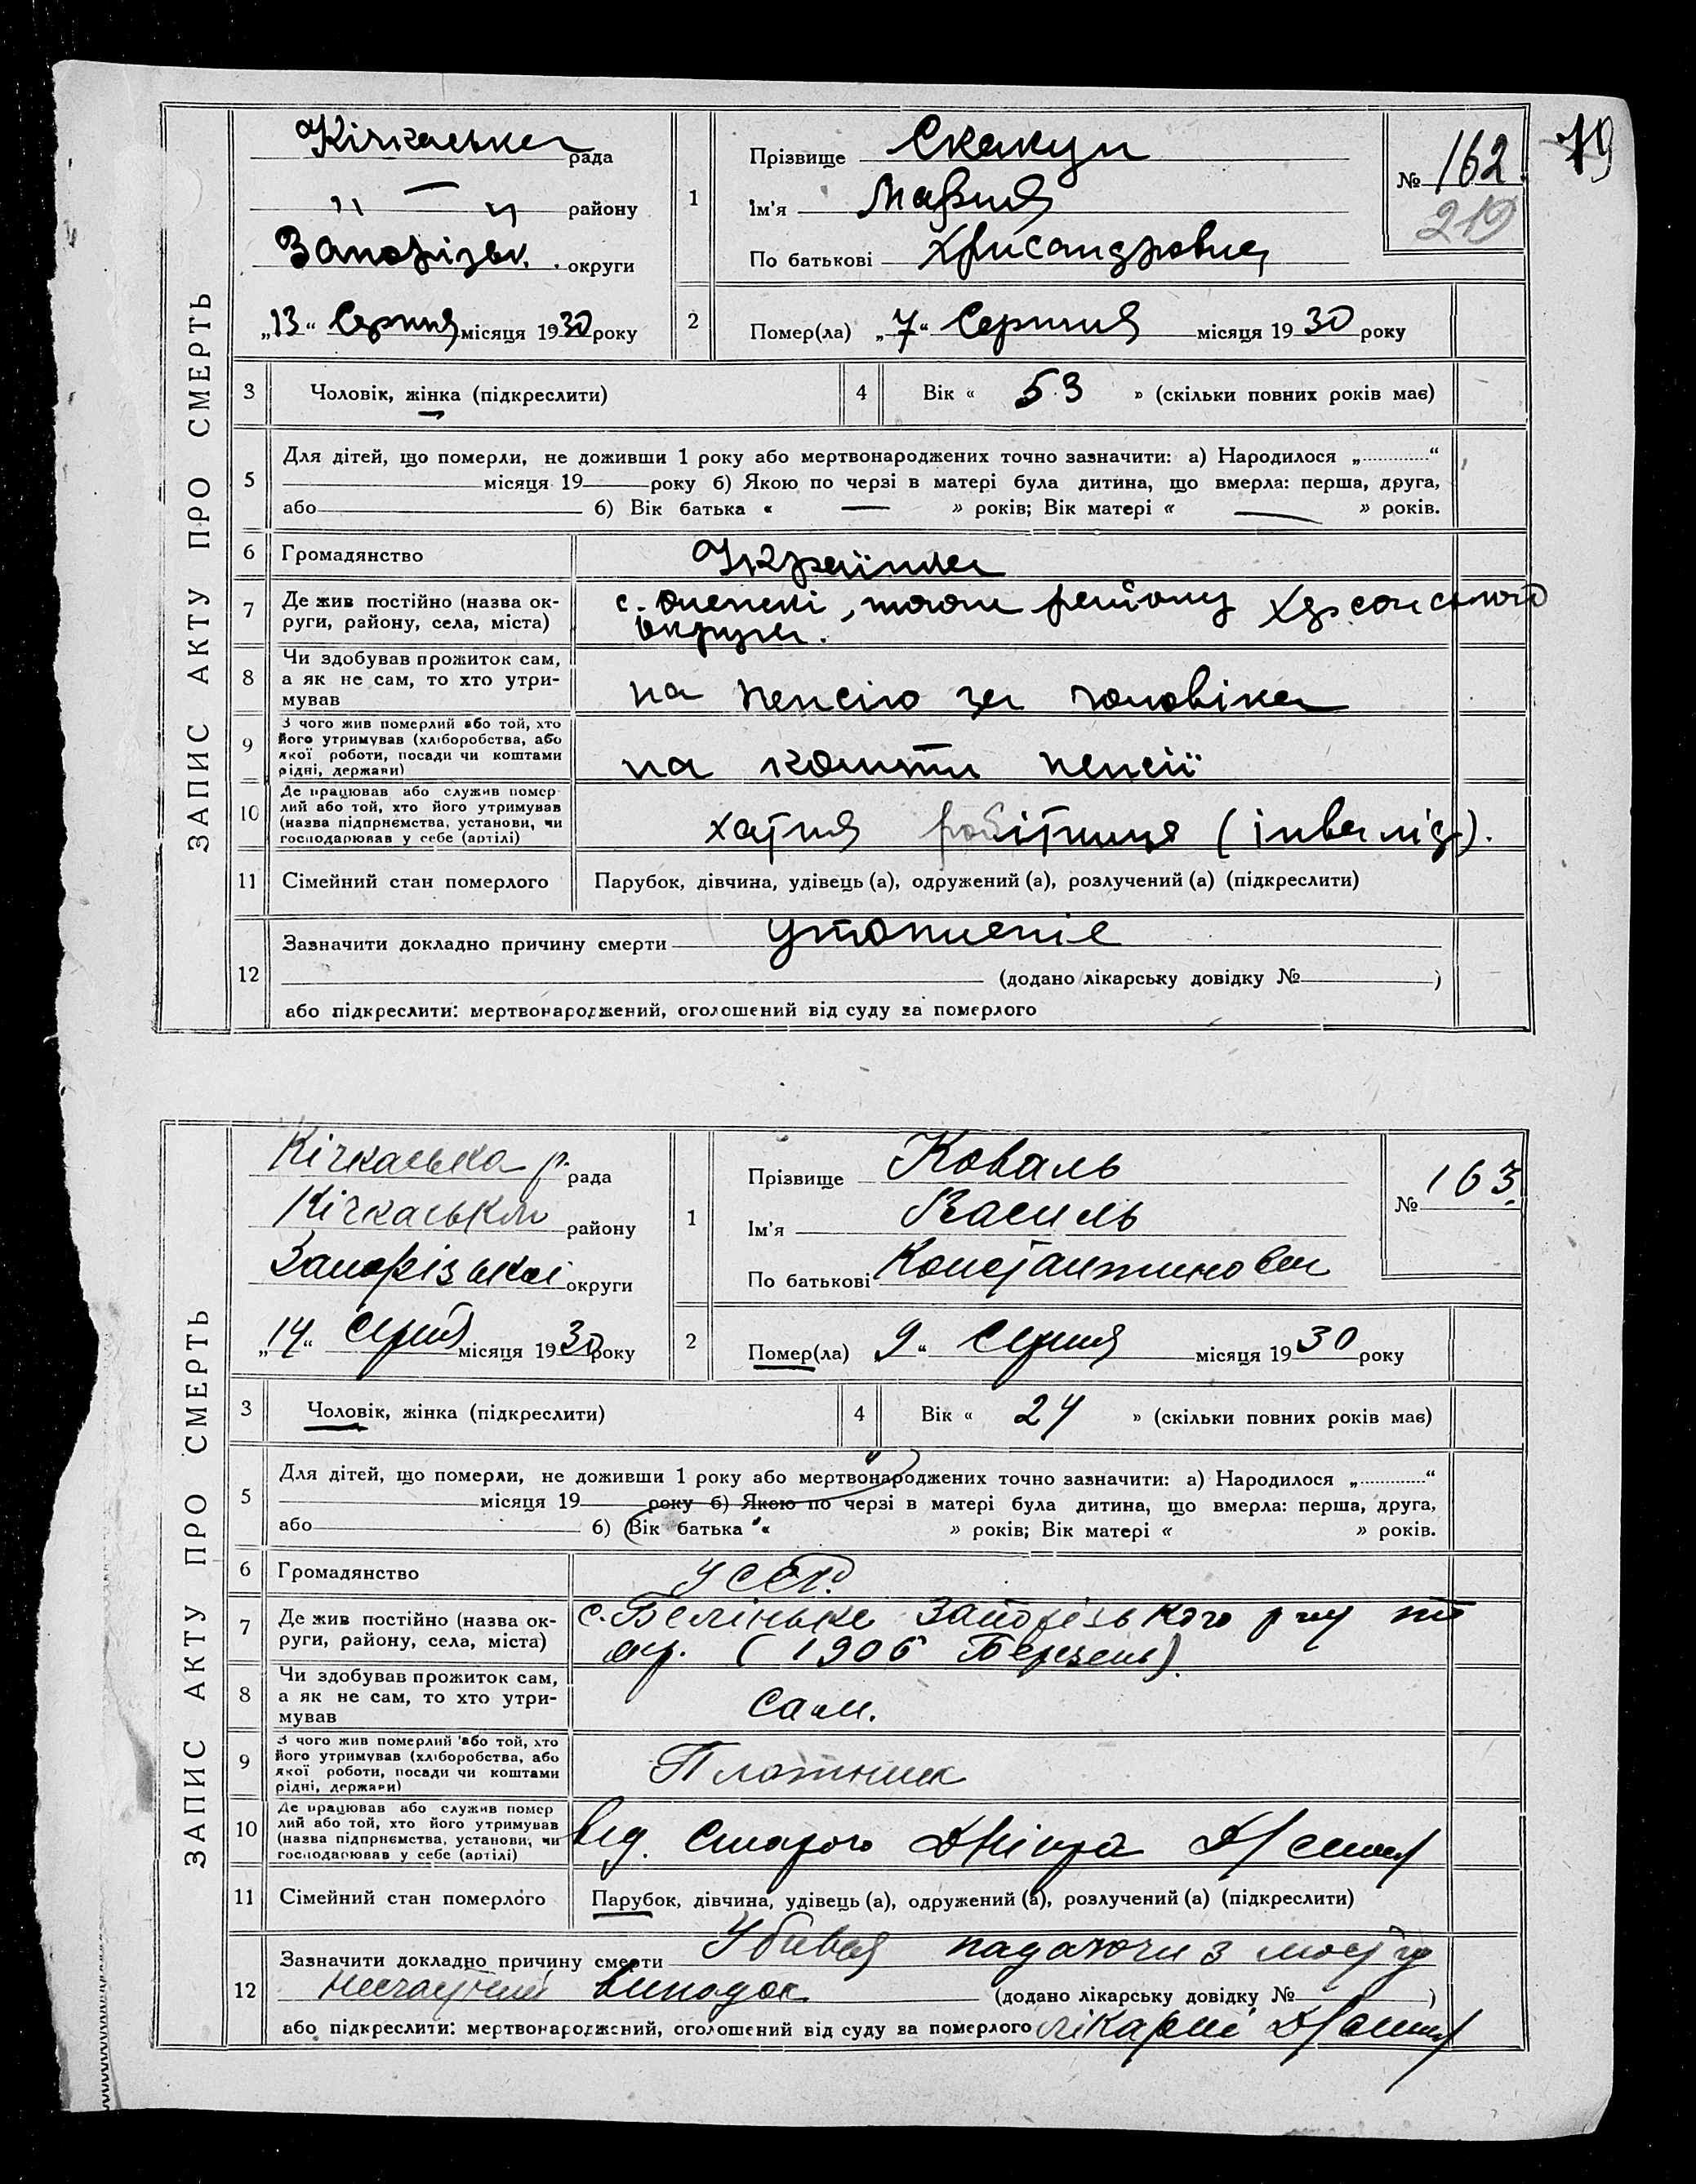 79
ЗАПИС АКТУ ПРО СМЕРТЬ
Кічкаська рада
" — " району
Запорізьк. округи
„13“ Серпня місяця 1930 року
1
Прізвище Скакун
Ім'я Мария
По батькові Хрисандровна
№ 162
219
2
Помер(ла) „7“ Серпня місяця 1930 року
3 Чоловік, жінка (підкреслити)
4 Вік « 53 » (скільки повних років має)
5
Для дітей, що померли, не доживши 1 року або мертвонароджених точно зазначити: а) Народилося „ “
місяця 19 року б) Якою по черзі в матері була дитина, що вмерла: перша, друга,
або б) Вік батька « — » років; Вік матері « — » років.
6 Громадянство Українка
7 Де жив постійно (назва ок-
руги, району, села, міста)
с. району Херсонського
округи.
8 Чи здобував прожиток сам,
а як не сам, то хто утри-
мував
на пенсію за чоловіка
9 З чого жив померлий або той, хто
його утримував (хліборобства, або
якої роботи, посади чи коштами
рідні, держави)
на кошти пенсії
10 Де працював або служив помер
лий або той, хто його утримував
(назва підприємства, установи, чи
господарював у себе (артілі)
хатня робітниця (інвалід).
11 Сімейний стан померлого Парубок, дівчина, удівець (а), одружений (а), розлучений (а) (підкреслити)
12
Зазначити докладно причину смерти утопленіе
(додано лікарську довідку № )
або підкреслити: мертвонароджений, оголошений від суду за померлого
ЗАПИС АКТУ ПРО СМЕРТЬ
Кічкаська р. рада
Кічкаськом району
Запорізької округи
„14“ Серпня місяця 1930 року
1
Прізвище Коваль
Ім'я Василь
По батькові Константинович
№ 163
2
Помер(ла) 9 “ Серпня місяця 1930 року
3 Чоловік, жінка (підкреслити)
4 Вік « 24 » (скільки повних років має)
5
Для дітей, що померли, не доживши 1 року або мертвонароджених точно зазначити: а) Народилося „ “
місяця 19 року б) Якою по черзі в матері була дитина, що вмерла: перша, друга,
або б) Вік батька « » років; Вік матері « » років.
6 Громадянство УССР.
7 Де жив постійно (назва ок-
руги, району, села, міста)
с. Беліньке Запорізького р-ну
окр. (1906 Березень).
8 Чи здобував прожиток сам,
а як не сам, то хто утри-
мував
Сам.
9 З чого жив померлий або той, хто
його утримував (хліборобства, або
якої роботи, посади чи коштами
рідні, держави)
Плотник
10 Де працював або служив помер
лий або той, хто його утримував
(назва підприємства, установи, чи
господарював у себе (артілі)
від. Старого Дніпра
11 Сімейний стан померлого Парубок, дівчина, удівець (а), одружений (а), розлучений (а) (підкреслити)
12
Зазначити докладно причину смерти Убився падаючи з мосту
Несчастний випадок (додано лікарську довідку № )
або підкреслити: мертвонароджений, оголошений від суду за померлого лікарні